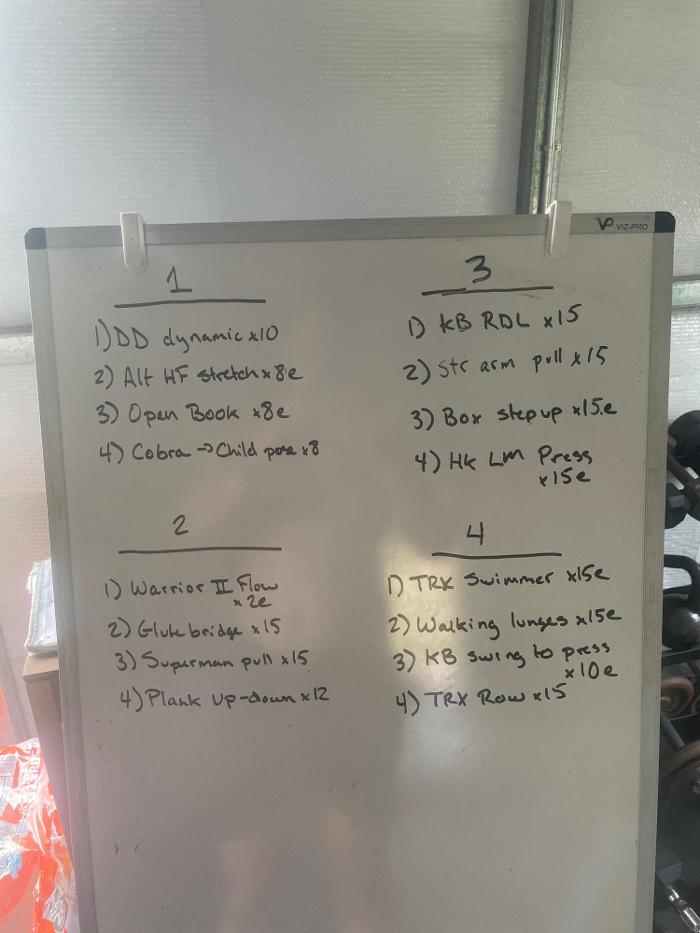 VP VIZ-PRO
1
1) DD dynamic x10
2) Alt HF stretch x 8e
3) Open Book x8e
4) Cobra → Child pose x8
2
1) Warrior II Flow
x 2e
2) Glute bridge x 15
3) Superman pull x15
4) Plank up-down x12
3
1) KB RDL x15
2) Str arm pull x15
3) Box step up x15e
4) HK LM Press
x15e
4
1) TRX Swimmer x15e
2) Walking lunges x15e
3) KB swing to press
x10e
4) TRX Row x15